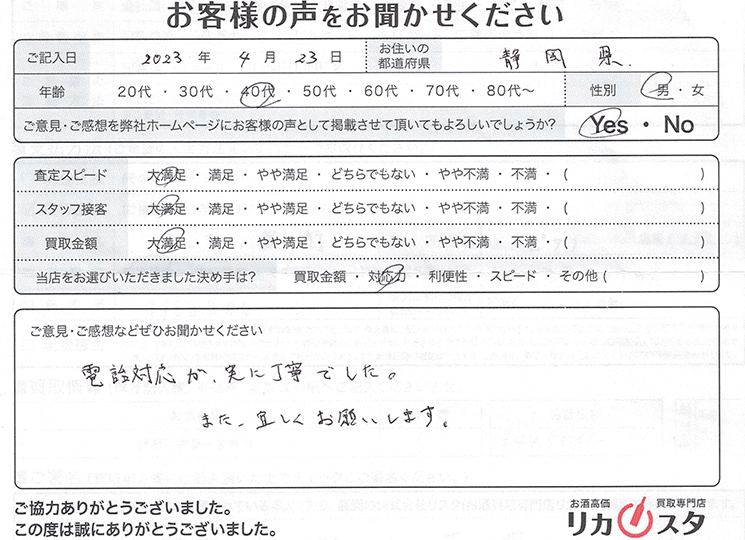 お客様の声をお聞かせください
ご記入日 2023 年 4 月 23 日 お住いの都道府県 静岡県.
年齢 20代 ・ 30代 ・ 40代 ・ 50代 ・ 60代 ・ 70代 ・ 80代〜 性別 男 ・ 女
ご意見・ご感想を弊社ホームページにお客様の声として掲載させて頂いてもよろしいでしょうか? Yes ・ No
査定スピード 大満足 ・ 満足 ・ やや満足 ・ どちらでもない ・ やや不満 ・ 不満 ・ ( )
スタッフ接客 大満足 ・ 満足 ・ やや満足 ・ どちらでもない ・ やや不満 ・ 不満 ・ ( )
買取金額 大満足 ・ 満足 ・ やや満足 ・ どちらでもない ・ やや不満 ・ 不満 ・ ( )
当店をお選びいただきました決め手は? 買取金額 ・ 対応力 ・ 利便性 ・ スピード ・ その他 ( )
ご意見・ご感想などぜひお聞かせください
電話対応が、実に丁寧でした。
また、宜しくお願いします。
ご協力ありがとうございました。
この度は誠にありがとうございました。
お酒高価 買取専門店
リカスタ